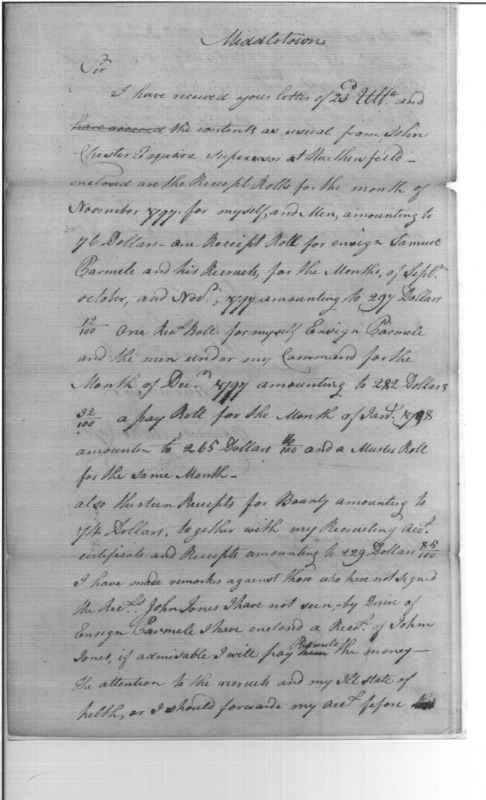 Middletown
Sir
I have received your letter of 23d Ulto. and
have acceed the contents as usual from John
Chester Esquire Supervisor at Weathersfield –
enclosed are the Receipt Rolls for the month of
November 1797. for myself, and Men, amounting to
76 Dollars – one Receipt Roll for ensign Samuel
Parmele and his Recruits, for the Months, of Sept.
october, and Novr., 1797 amounting to 297 Dollars
12/100 One Rect. Roll for myself Ensign Parmele
and the men under my Command for the
Month, of Decr. 1797 amounting to 282 Dollars
32/100 a pay Roll for the Month of Jany. 1798
amounten to 265 Dollars /100 and a Muster Roll
for the same Month –
also thirteen Receipts for Bounty amounting to
74 Dollars, together with my Recruiting Act.
certificate and Receipts amounting to 29 Dollars 85/100
I have made remarks against those who have not signed
the Rects. John Jones I have not seen, – by Desire of
Ensign Parmele I have enclosed a Rect. of John
Jones, if admisable I will pay him Parmele the money –
The attention to the recruits and my Ill state of
helth, or I should forwarde my Act. before